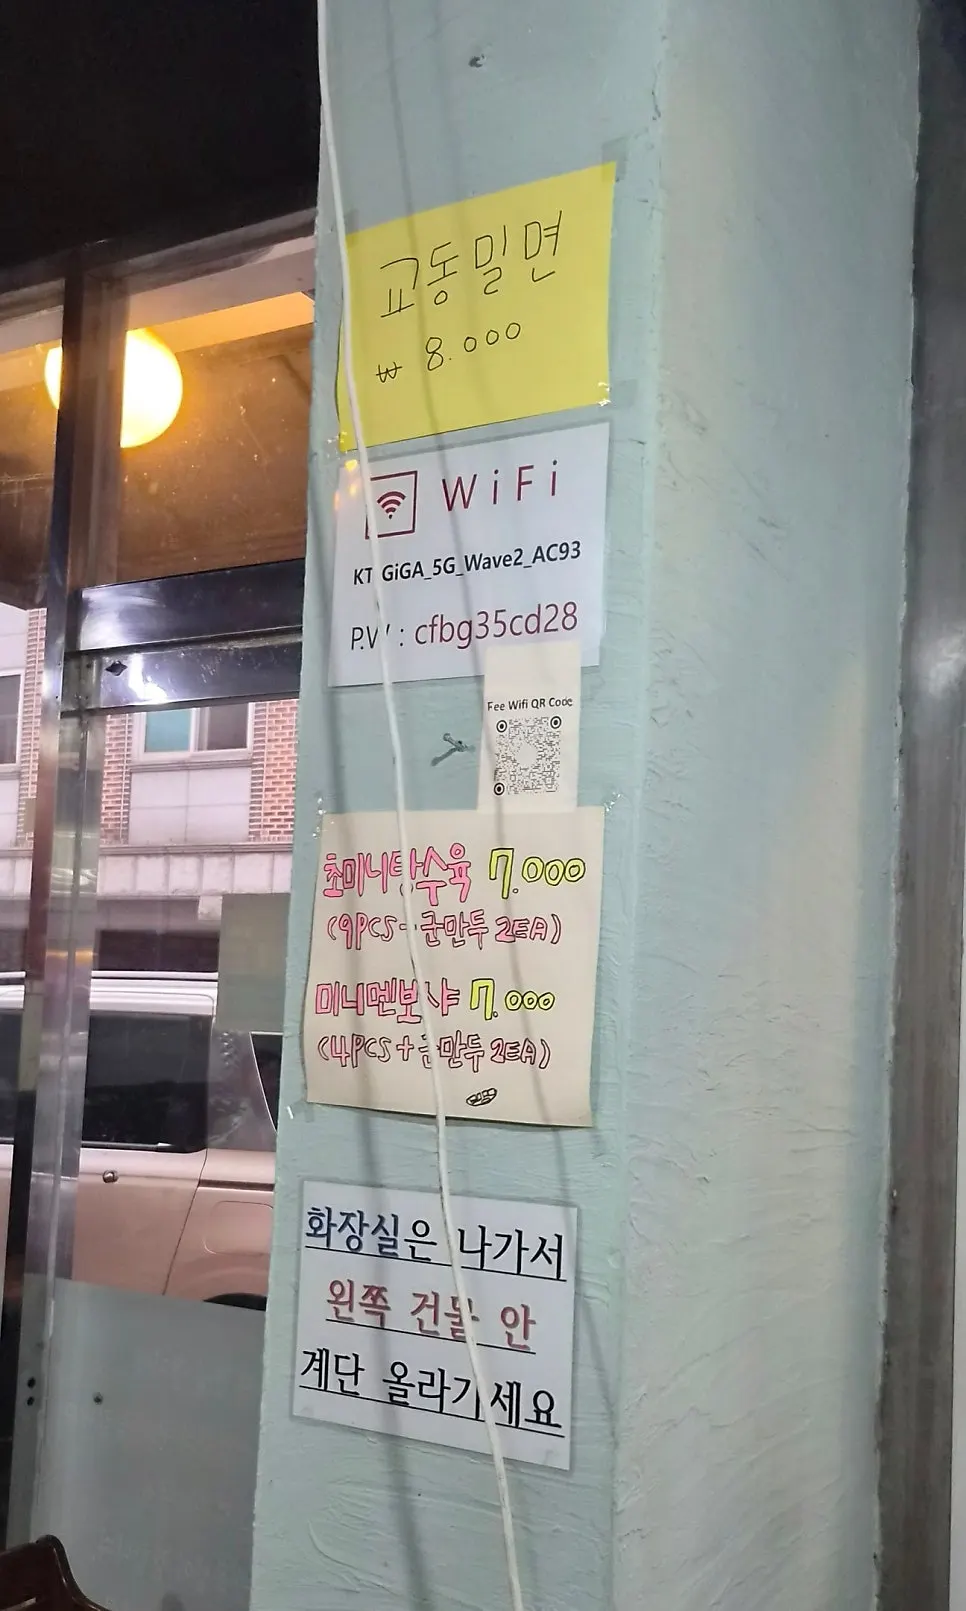 교동밀면
₩ 8.000
WiFi
KT_GiGA_5G_Wave2_AC93
P.W : cfbg35cd28
Fee Wifi QR Code
초미니탕수육 7.000
(9PCS+군만두 2EA)
미니멘보샤 7.000
(4PCS+군만두 2EA)
화장실은 나가서
왼쪽 건물 안
계단 올라가세요